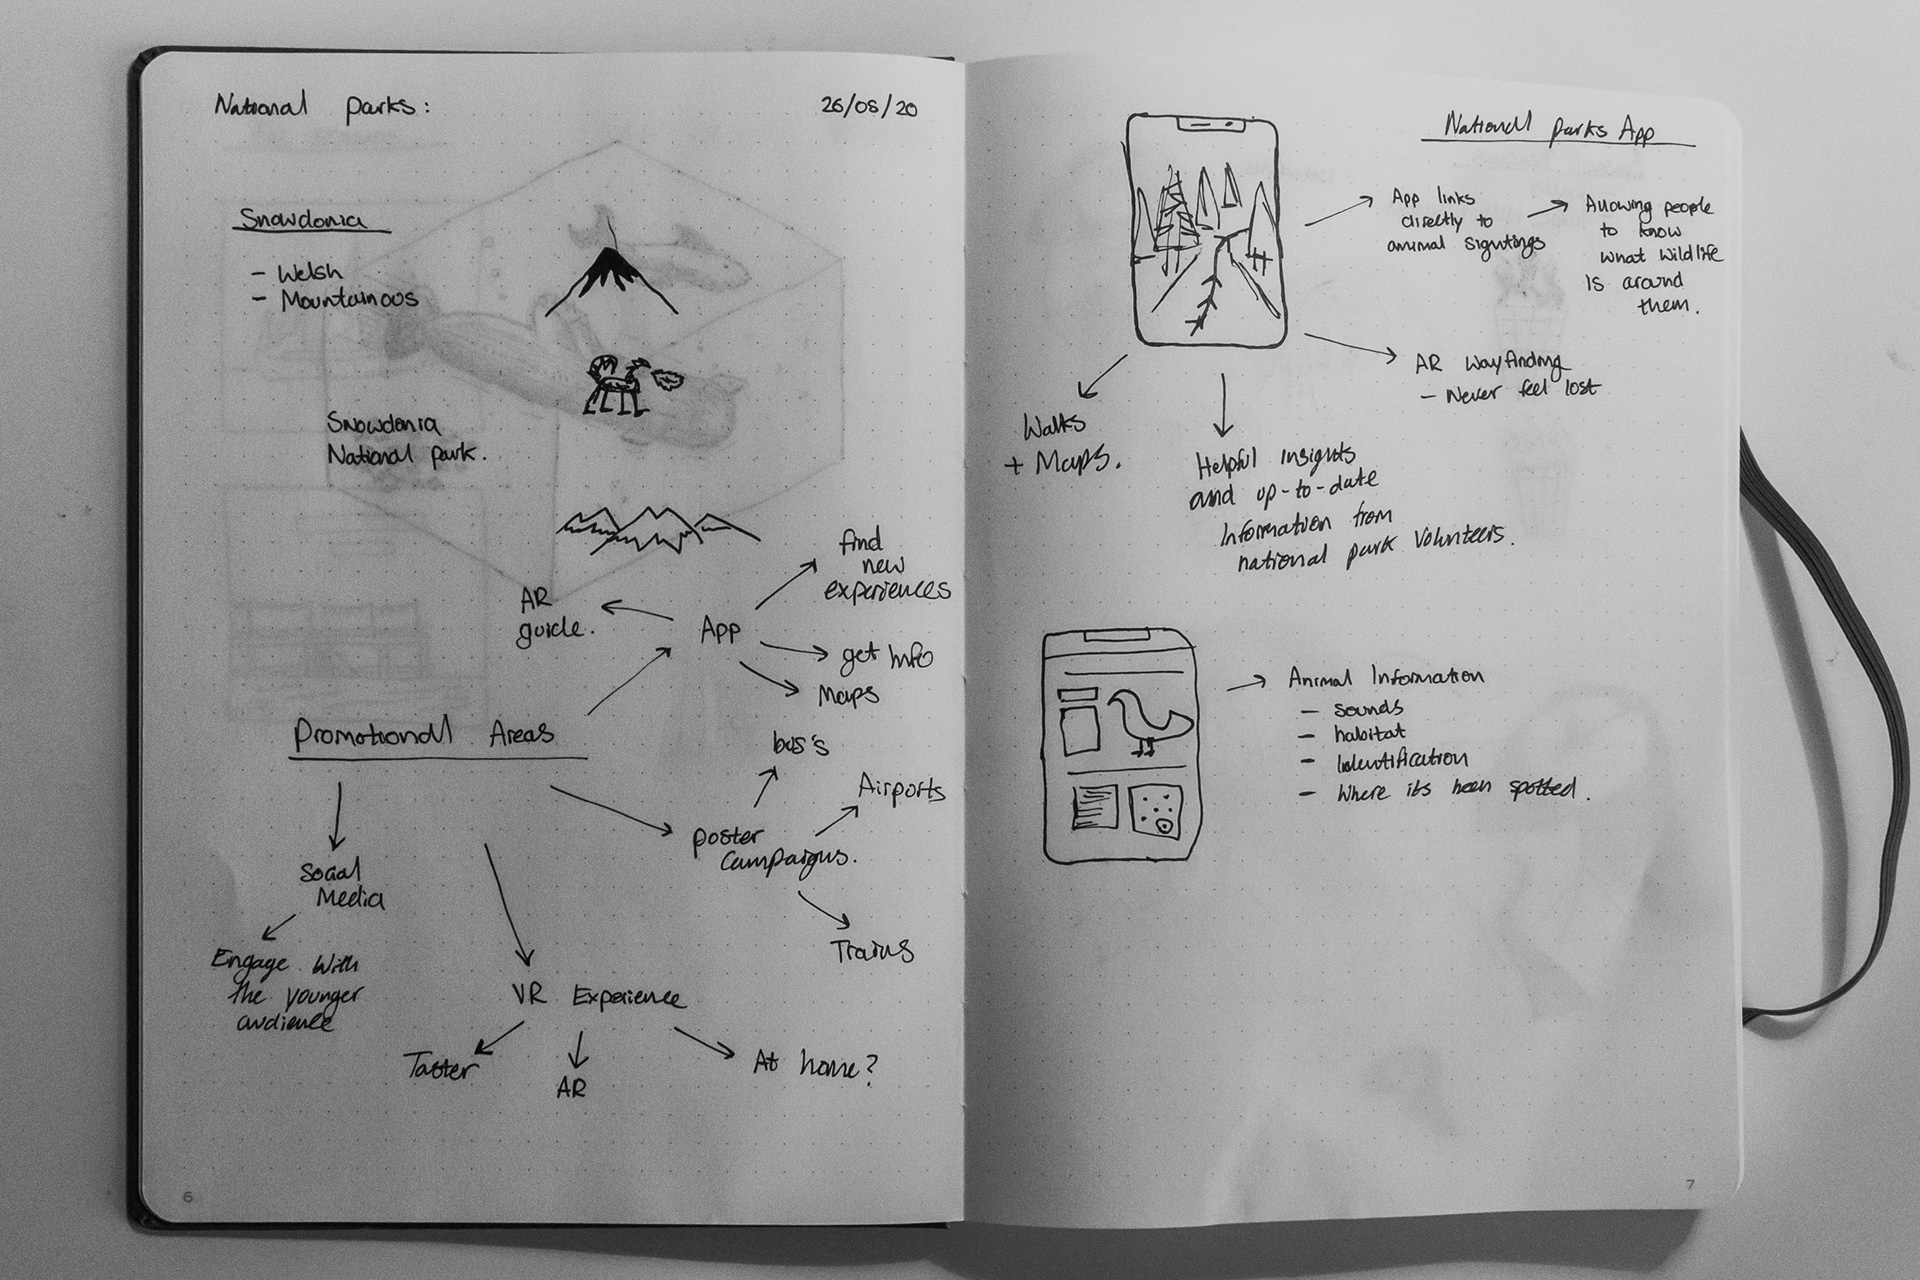 National parks:
26/08/20
Snowdonia
- Welsh
- Mountainous
Snowdonia
National park.
AR
guide.
App
find
new
experiences
get info
Maps
Promotional Areas
bus's
Airports
poster
Campaigns.
Trains
Social
Media
Engage with
the younger
audience
VR Experience
Taster
AR
At home?
6
National parks App
App links
directly to
animal sightings
Allowing people
to know
what wildlife
is around
them.
AR wayfinding
- Never feel lost
Walks
+ Maps.
Helpful insights
and up-to-date
information from
national park volunteers.
Animal Information
- sounds
- habitat
- identification
- where its been spotted.
7